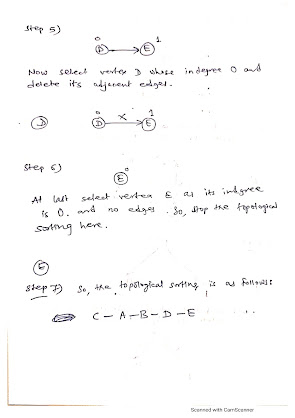 Step 5)
0 1
D E
Now select vertex D whose indegree 0 and
delete its adjacent edges.
0 1
D D X E
Step 6)
0
E
At last select vertex E as its indgree
is 0. and no edges. So, stop the topological
sorting here.
E
Step 7) So, the topological sorting is as follows:
C - A - B - D - E
Scanned with CamScanner